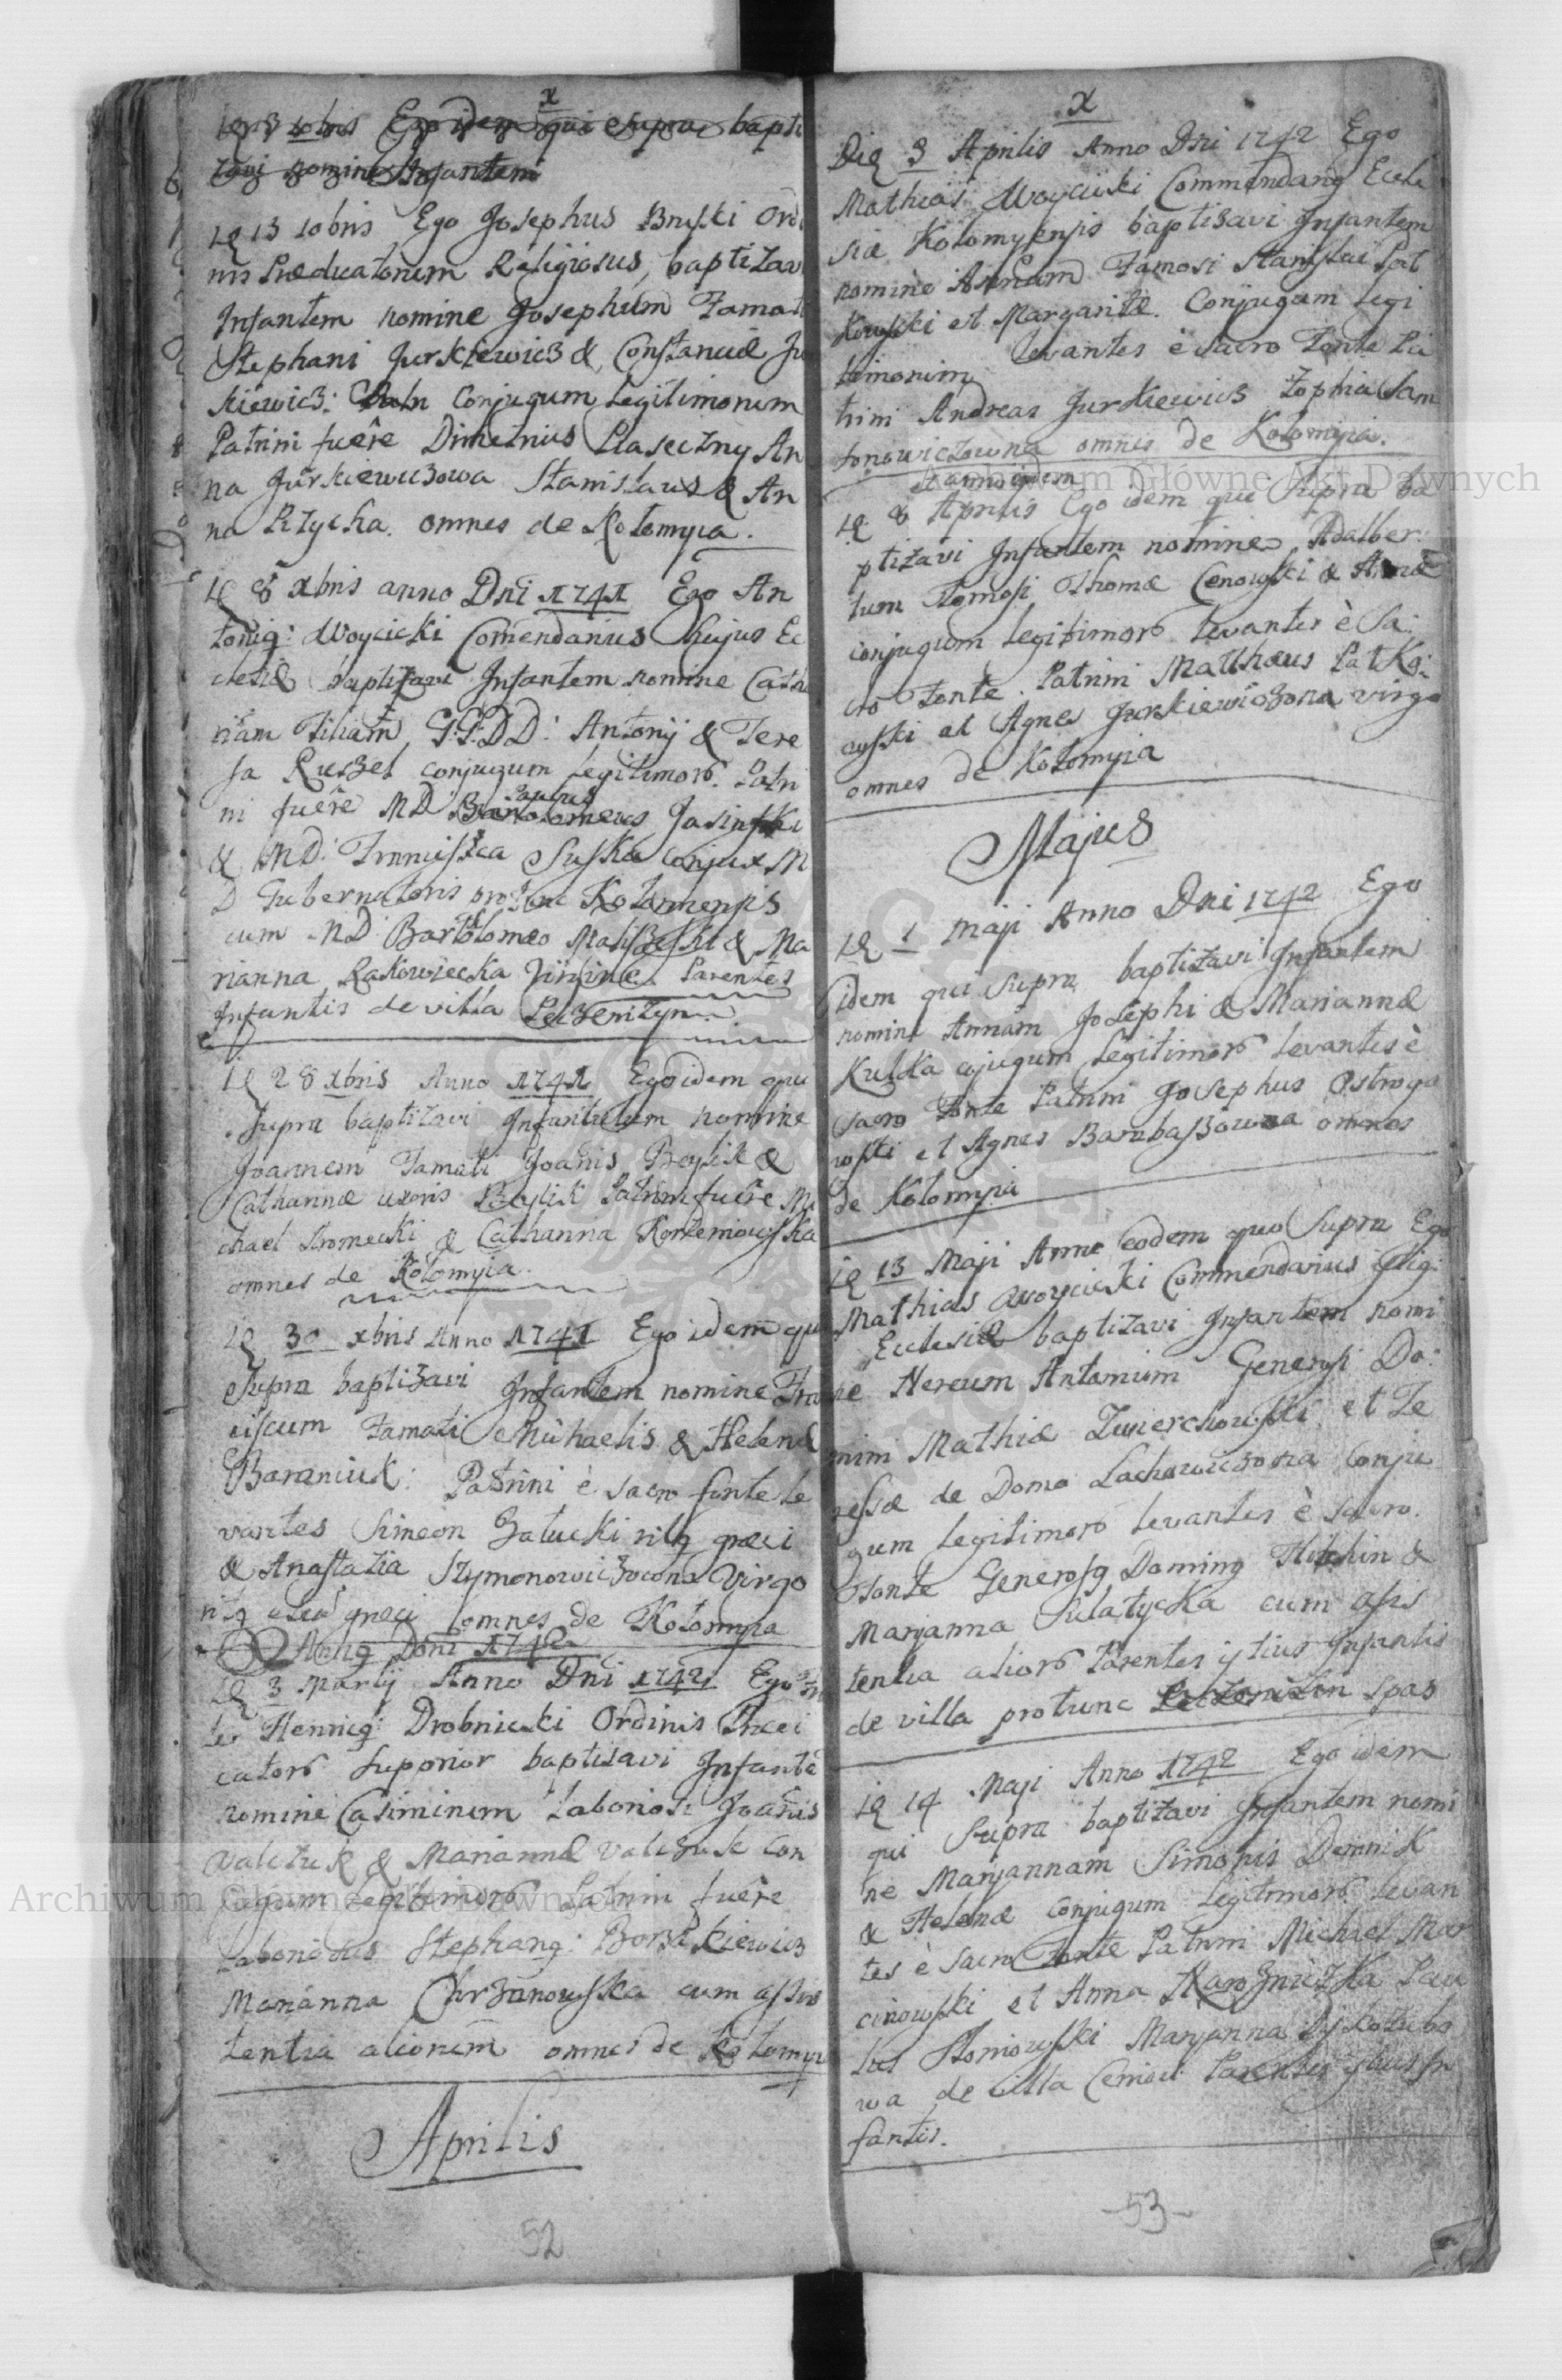 x
10bris Ego idem qui supra bapti
zavi nomine Infantem
13 10bris Ego Josephus Bruski Ordi
nis Prædicatorum Religiosus, baptizav
Infantem nomine Josephum Famati
Stephani Jurkiewicz & Constanciæ Ju
kiewicz: Conjugum Legitimorum
Patrini fuêre Dimetrius Piaseczny An
na Jurkiewiczowa Stanislaus & An
na omnes de Kołomyia.
8 Xbris anno Dni 1741 Ego An
toni9: Woycicki Comendarius hujus Ec
clesiæ baptizavi Infantem nomine Catha
rinam Filiam G:G:DD: Antonij & Tere
sa conjugum legitimoro. Patri
ni fuêre MD Bartolomeus Paulus Jasinski
& MD: Franciszca Suska conjux M
D Gubernatoris protunc Kolomensis
cum MD Bartolomeo & Ma
rianna Rakowiecka Virgine. Parentes
Infantis de villa Peczenizyn.
28 Xbris Anno 1741 Ego idem qui
supra baptizavi Infantulum nomine
Joannem Famati Joañis &
Catharinæ uxoris Patrini fuêre Mi
chael & Catharina Korzeniowska
omnes de Kołomyia.
30 xbris Anno 1741 Ego idem qui
supra baptizavi Infantem nomine Fran
ciscum Famati Michaelis & Helenæ
Baraniuk: Patrini è sacro fonte le
vantes Simeon Załucki rit9 græci
& Anastazia Szymonowiczowna Virgo
rit9 græci omnes de Kołomyia
Ann9 Doni 1742
3 Martij Anno Dni 1742 Ego
Henric9: Drobnicki Ordinis Prædi
catoro Supprior baptizavi Infantē
nomine Casimirum Laboriosi Joañis
Valczuk & Mariannæ Valczuk Con
jugum Legitimoro Patrini fuêre
Laboriosus Stephan9: Borszkiewicz
Marianna Chrzanowska cum assis
tentia aliorum omnes de Kołomyi
Aprilis
52
x
Die 3 Aprilis Anno Dni 1742 Ego
Mathias Woycicki Commendari9 Eccle
siæ Kołomyensis baptisavi Infantem
nomine Annam Famosi Stanislai Pat
kowski et Margaritæ. Conjugum Legi
timorum Levantes è Sacro Fonte Pa
trini Andreas Jurkiewicz Zophia Sam
sonowiczowna omnes de Kołomyia.
et anno quem
8 Aprilis Ego idem qui supra ba
ptizavi Infantem nomine Adalber
tum Famosi Thomæ Cenowski & Annæ
conjugum legitimoro Levantes è Sa:
cro Fonte. Patrini Matthæus Patko:
wski et Agnes Jurkiewiczona virgo
omnes de Kołomyia
Majus
1 Maji Anno Dni 1742 Ego
idem qui supra baptizavi Infantem
nomine Annam Josephi & Mariannæ
Kulka cojugum Legitimoro Levantes è
Sacro Fonte Patrini Josephus Ostrogo
rski et Agnes Barabaszowna omnes
de Kolomyia
13 Maji Anno eodem quo Supra Ego
Mathias Woycicki Commendarius
Ecclesiæ baptizavi Infantem nomi
ne Nereum Antonium Generosi Do:
mini Mathiæ Zwierchowski et Te
ressæ de Domo Lachowiczowa Conju
gum legitimoro Levantes è Sacro.
Fonte Generos9 Domin9 &
Marjanna Sulatycka cum assis
tentia alioro Parentes istius Infantis
de villa protunc Spas
14 Maji Anno 1742 Ego idem
qui Supra baptizavi Infantem nomi
ne Marjannam Simonis Demnik
& Helenæ Conjugum Legitimoro Levan
tes è Sacro Fonte Patrini Michael Mar
cinowski et Anna Paw
Marjanna
wa de villa Parentes istius In
fantis.
-53-
Archiwum Główne Akt Dawnych
Archiwum Główne Akt Dawnych